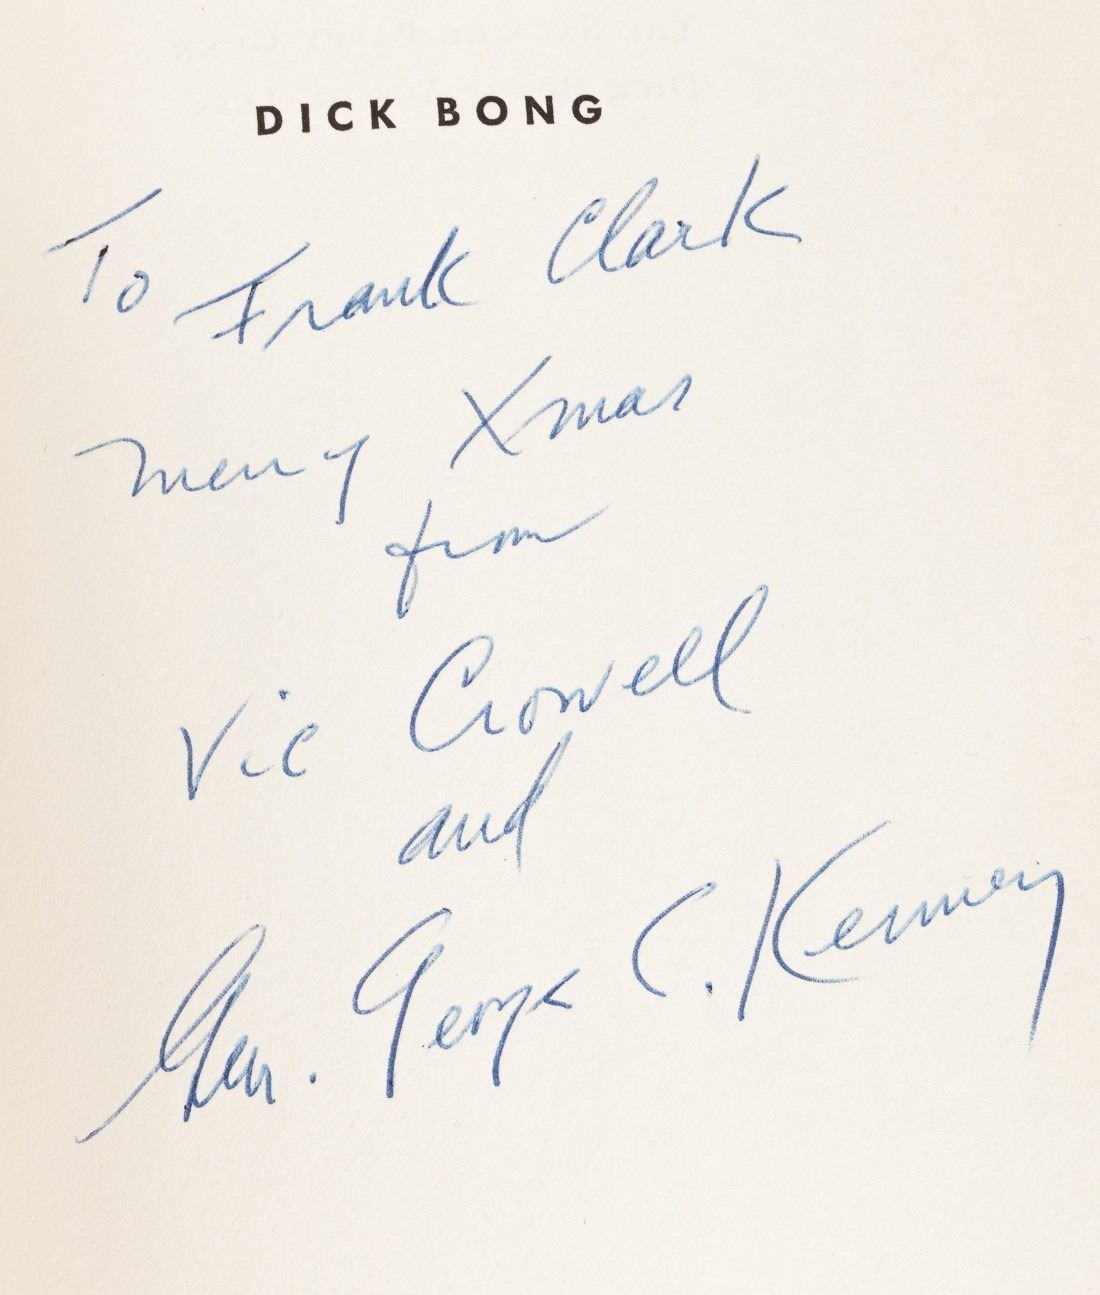 DICK BONG
To Frank Clark
Merry Xmas
from
Vic Crowell
and
Gen. George C. Kenney